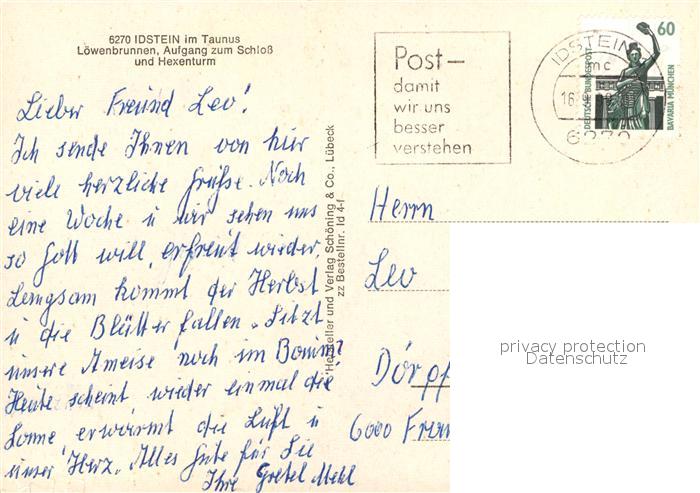 6270 IDSTEIN im Taunus
Löwenbrunnen, Aufgang zum Schloß
und Hexenturm
Lieber Freund Leo!
Ich sende Ihnen von hier
viele herzliche Grüße. Noch
eine Woche u wir sehen uns
so Gott will, erfreut wieder.
Langsam kommt der Herbst
u die Blätter fallen. Sitzt
unsere Ameise noch im Baum?
Heute scheint wieder einmal die
Sonne erwärmt die Luft u
unser Herz. Alles Gute für Sie
Ihre Gretel Mehl
Hersteller und Verlag Schöning & Co., Lübeck
zz Bestellnr. Id 4-f
Post –
damit
wir uns
besser
verstehen
IDSTEIN
mc
16.
6270
60
DEUTSCHE BUNDESPOST
BAVARIA MÜNCHEN
Herrn
Leo
Dörpf
6000 Fran
privacy protection
Datenschutz